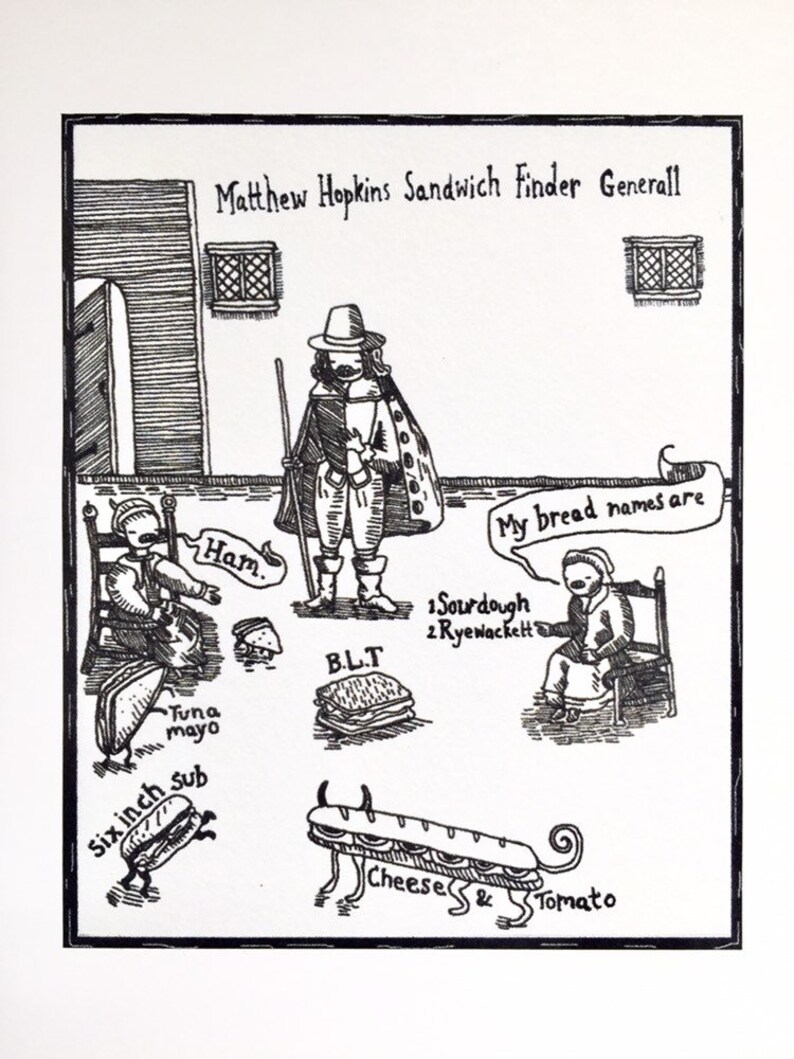 Matthew Hopkins Sandwich Finder Generall
Ham.
My bread names are
1 Sourdough
2 Ryewackett
B.L.T
Tuna
mayo
Six inch Sub
Cheese & Tomato